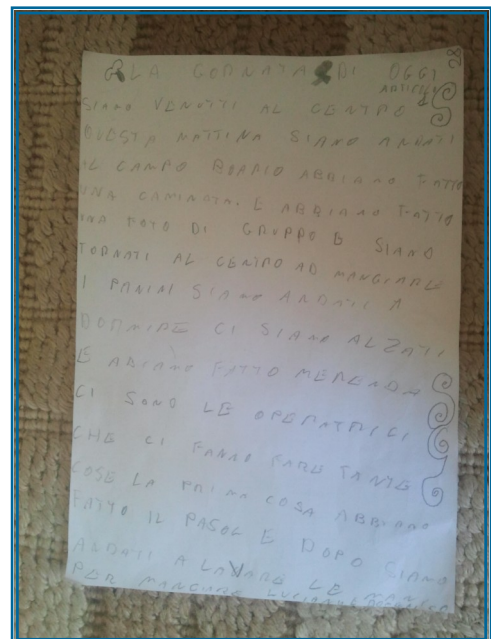 LA GORNATA DI OGGI
SIAMO VENUTTI AL CENTRO
QUESTA MATTINA SIAMO ANDATI
AL CAMPO BOARIO ABBIAMO FATTO
UNA CAMINATA. E ABBIAMO FATTO
UNA FOTO DI GRUPPO E SIAMO
TORNATI AL CENTRO AD MANGIARE
I PANINI SIAMO ANDATI A
DORMIRE CI SIAMO ALZATI
E ABIAMO FATTO MERENDA
CI SONO LE OPERATRICI
CHE CI FANNO FARE TANTE
COSE LA PRIMA COSA ABBIAMO
FATTO IL PASOL E DOPO SIAMO
ANDATI A LAVARE LE MANI
PER MANGIARE